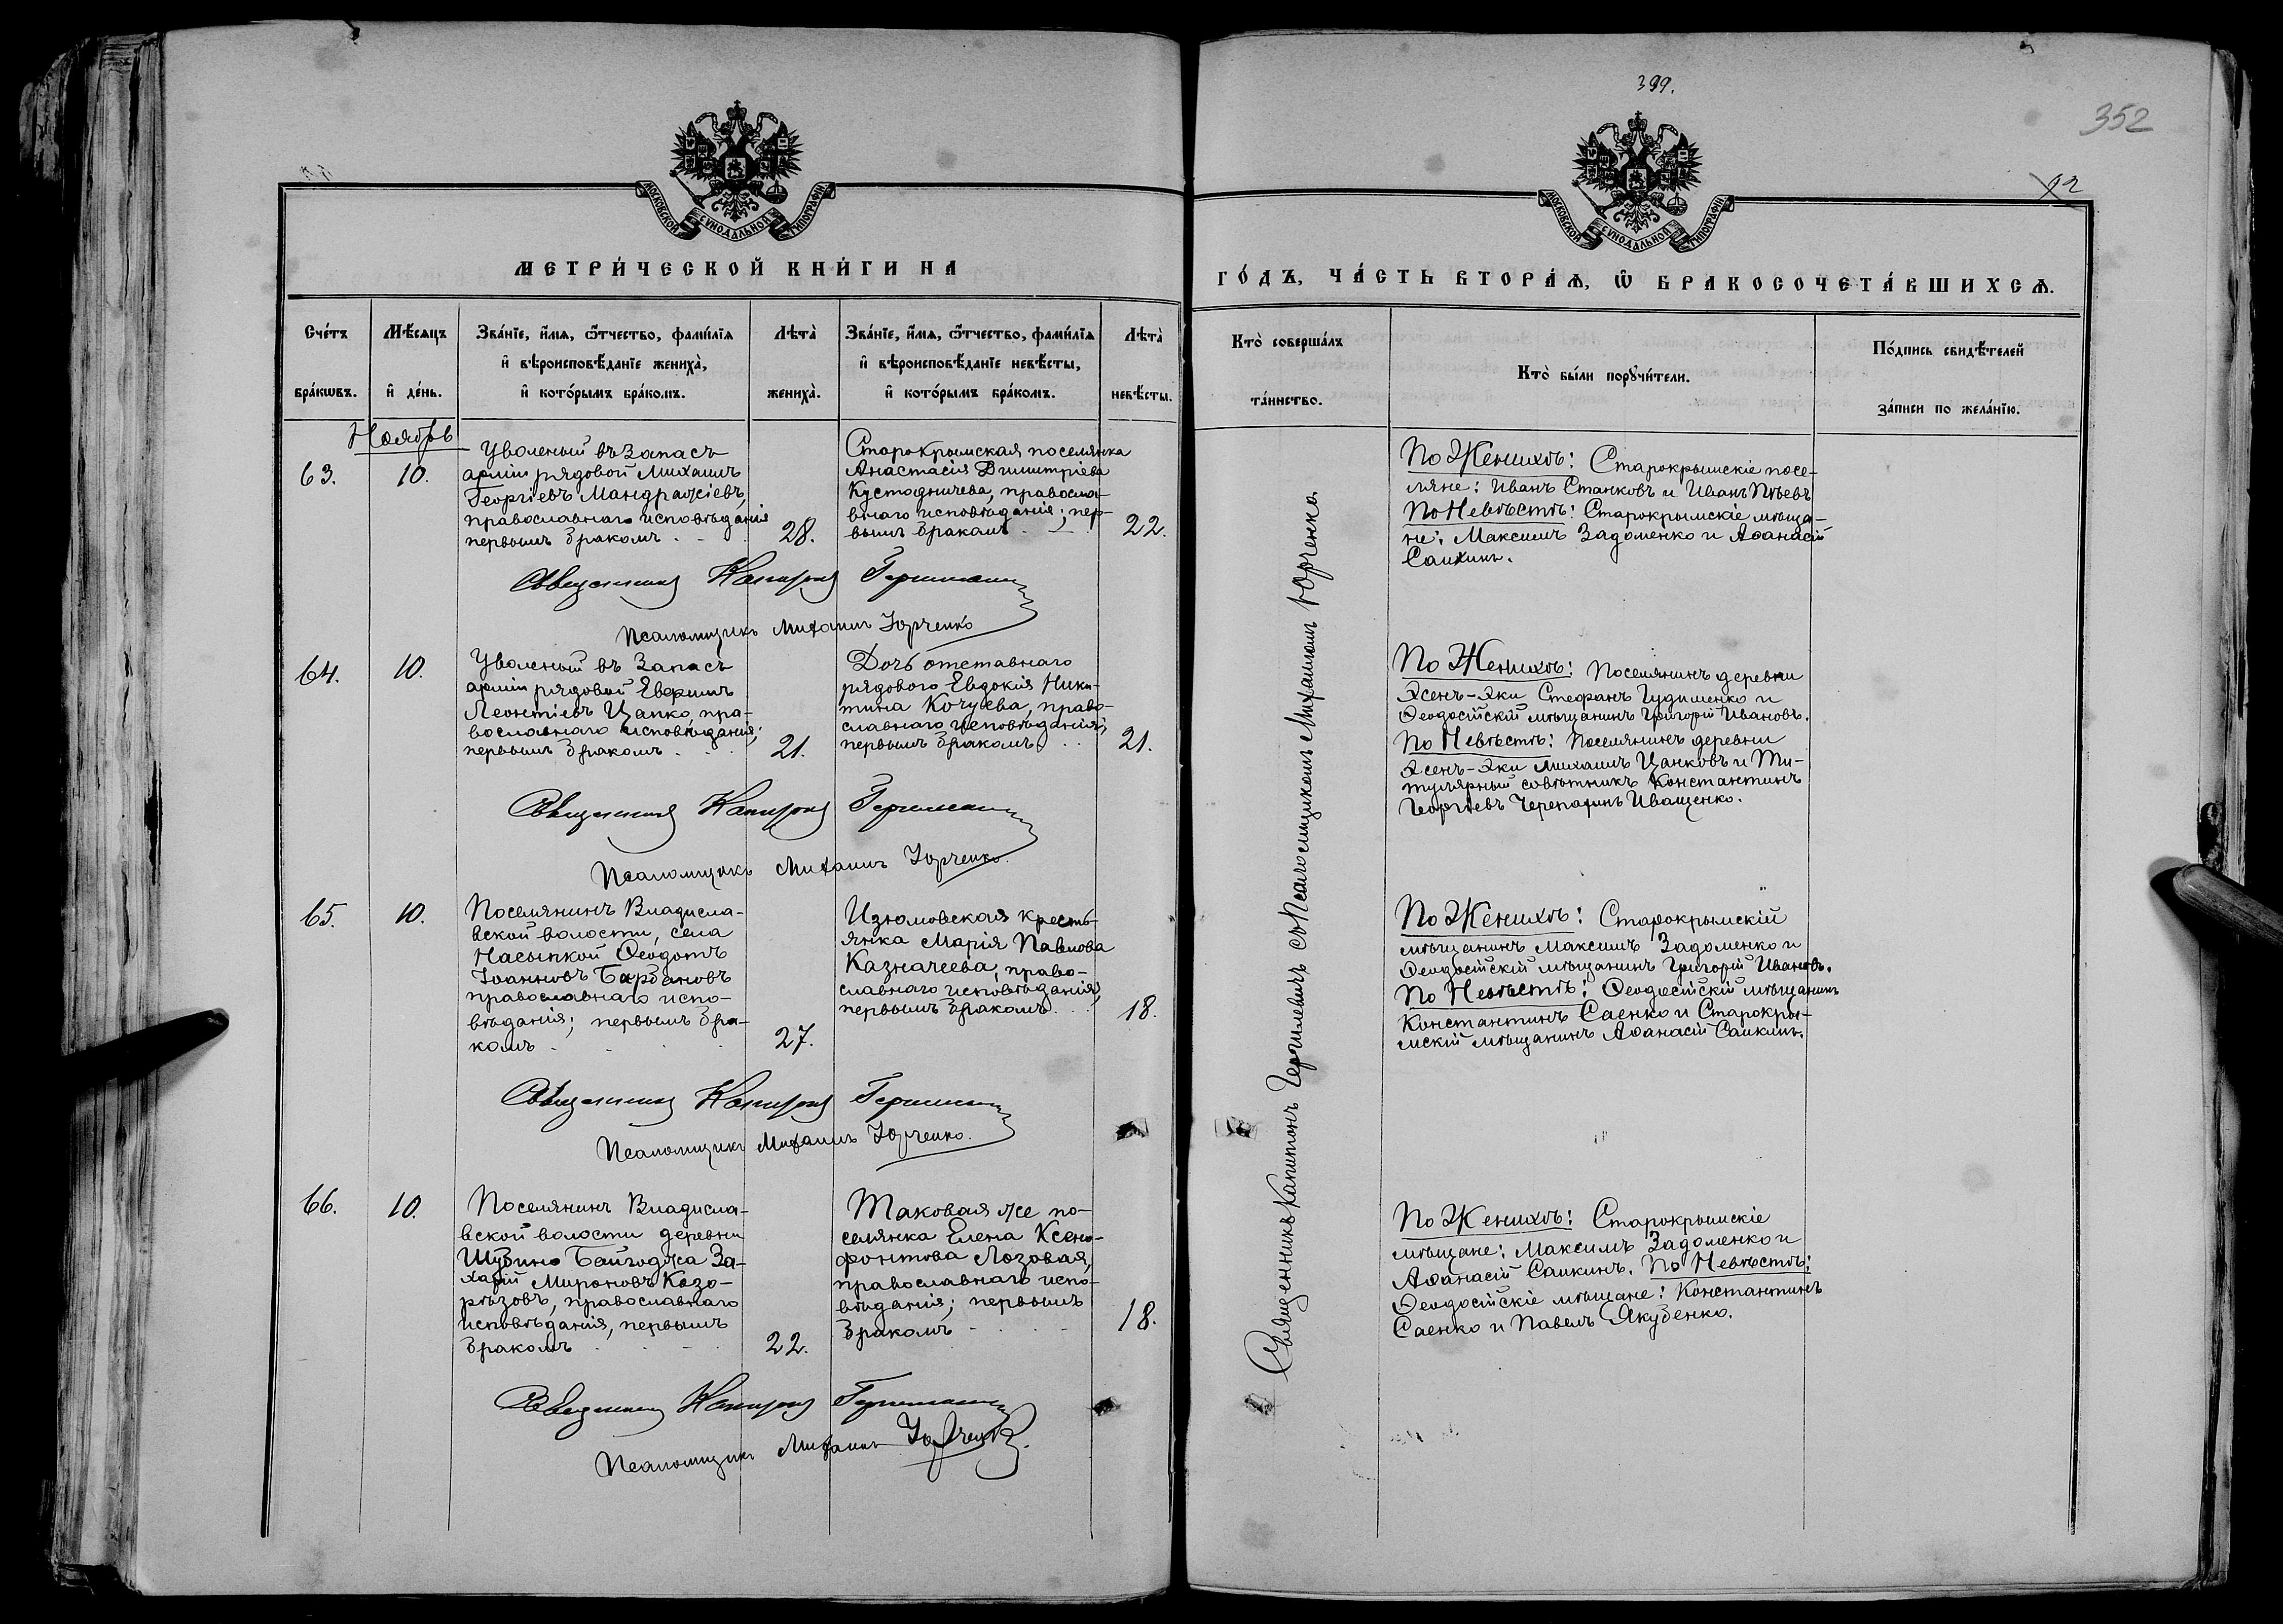 399.
352
12
МОСКОВСКОЙ СѴНОДАЛЬНОЙ ТИПОГРАФІИ
МОСКОВСКОЙ СѴНОДАЛЬНОЙ ТИПОГРАФІИ
МЕТРИ́ЧЕСКОЙ КНИ́ГИ НА
ГО́ДЪ, ЧА́СТЬ ВТОРА́Ѧ, Ѿ БРАКОСОЧЕТА́ВШИХСѦ.
Сче́тъ
бра́кѡвъ.
Мѣ́сѧцъ
и҆ де́нь.
Зва́нїе, и҆́мѧ, ѻ҆́тчество, фами́лїѧ
и҆ вѣроисповѣ́данїе жениха̀,
и҆ кото́рымъ бра́комъ.
Лѣта̀
жениха̀.
Зва́нїе, и҆́мѧ, ѻ҆́тчество, фами́лїѧ
и҆ вѣроисповѣ́данїе невѣ́сты,
и҆ кото́рымъ бра́комъ.
Лѣта̀
невѣ́сты.
Кто̀ соверша́лъ
та́инство.
Кто̀ бы́ли порꙋчи́тели.
По́дпись свидѣ́телей
за́писи по жела́нїю.
Ноябрь
63.
10.
Уволеный въ Запасъ
арміи рядовой Михаилъ
Георгіевъ Мандражіевъ,
православнаго исповѣданія
первымъ бракомъ
28.
Старокрымская поселянка
Анастасія Димитріева
Кустодничева, православ-
внаго исповѣданія; пер-
вымъ бракомъ
22.
По Женихѣ: Старокрымскіе посе-
ляне: Иванъ Станковъ и Иванъ Піевъ
По Невѣстѣ: Старокрымскіе мѣща-
не: Максимъ Задоменко и Аѳанасій
Саикинъ.
Священникъ Капитонъ
Псаломщикъ Михаилъ Юрченко
64.
10.
Уволеный въ Запасъ
арміи рядовой Евфимъ
Леонтіевъ Цапко, пра-
вославнаго исповѣданія;
первымъ бракомъ
21.
Дочь отставнаго
рядового Евдокія Ники-
тина Кочуева, право-
славнаго исповѣданія;
первымъ бракомъ.
21.
По Женихѣ: Поселянинъ деревни
Эсенъ-Эки Стефанъ Гудименко и
Ѳеодосійскій мѣщанинъ Григорій Ивановъ.
По Невѣстѣ: Поселянинъ деревни
Эсенъ-Эки Михаилъ Цанковъ и Ти-
тулярный совѣтникъ Константинъ
Георгіевъ Черепахинъ Иващенко.
Священникъ Капитонъ
Псаломщикъ Михаилъ Юрченко.
65.
10.
Поселянинъ Владисла-
вской волости, села
Насыпкой Ѳеодотъ
Іоанновъ Барбановъ
православнаго испо-
вѣданія; первымъ бра-
комъ
27.
Изюмовская кресть-
янка Марія Павлова
Казначеева, право-
славнаго исповѣданія,
первымъ бракомъ.
18.
По Женихѣ: Старокрымскій
мѣщанинъ Максимъ Задоменко и
Ѳеодосійскій мѣщанинъ Григорій Ивановъ.
По Невѣстѣ: Ѳеодосійскій мѣщанинъ
Константинъ Саенко и Старокры-
мскій мѣщанинъ Аѳанасій Саикинъ.
Священникъ Капитонъ
Псаломщикъ Михаилъ Юрченко.
66.
10.
Поселянинъ Владисла-
вской волости деревни
Шубино Байгоджа За-
харій Мироновъ Козо-
рѣзовъ, православнаго
исповѣданія, первымъ
бракомъ
22.
Таковая же по-
селянка Елена Ксено-
фонтова Лозовая,
православнаго испо-
вѣданія; первымъ
бракомъ
18.
По Женихѣ: Старокрымскіе
мѣщане: Максимъ Задоменко и
Аѳанасій Саикинъ. По Невѣстѣ:
Ѳеодосійскіе мѣщане: Константинъ
Саенко и Павелъ Якубенко.
Священникъ Капитонъ
Псаломщикъ Михаилъ Юрченко.
Священникъ Капитонъ съ Псаломщикомъ Михаиломъ Юрченко